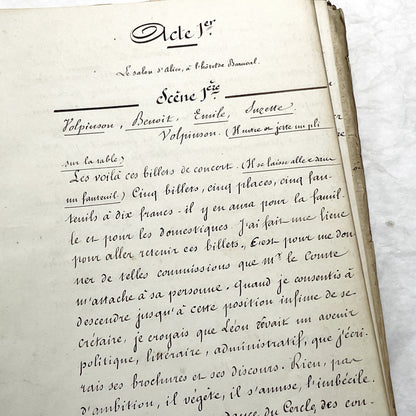 Acte 1er.
Le salon d'Alice, à l'hôtel de Barneval.
Scène 1ère
Volpinson, Benoît, Emile, Suzette.
Volpinson. (Il entre et jette un pli
sur la table)
Les voilà ces billets de concert. (Il se laisse aller dans
un fauteuil) Cinq billets, cinq places, cinq fau-
teuils à dix francs - il y en aura pour la famil-
le et pour les domestiques. J'ai fait une lieue
pour aller retenir ces billets. C'est pour me don-
ner de telles commissions que mr le Comte
m'attache à sa personne. Quand je consentis à
descendre jusqu'à cette position infime de se-
crétaire, je croyais que Léon rêvait un avenir
politique, littéraire, administratif, que j'écri-
rais ses brochures et ses discours. Rien, pas
d'ambition, il végète, il s'amuse, l'imbécile.
du Cercle des con-